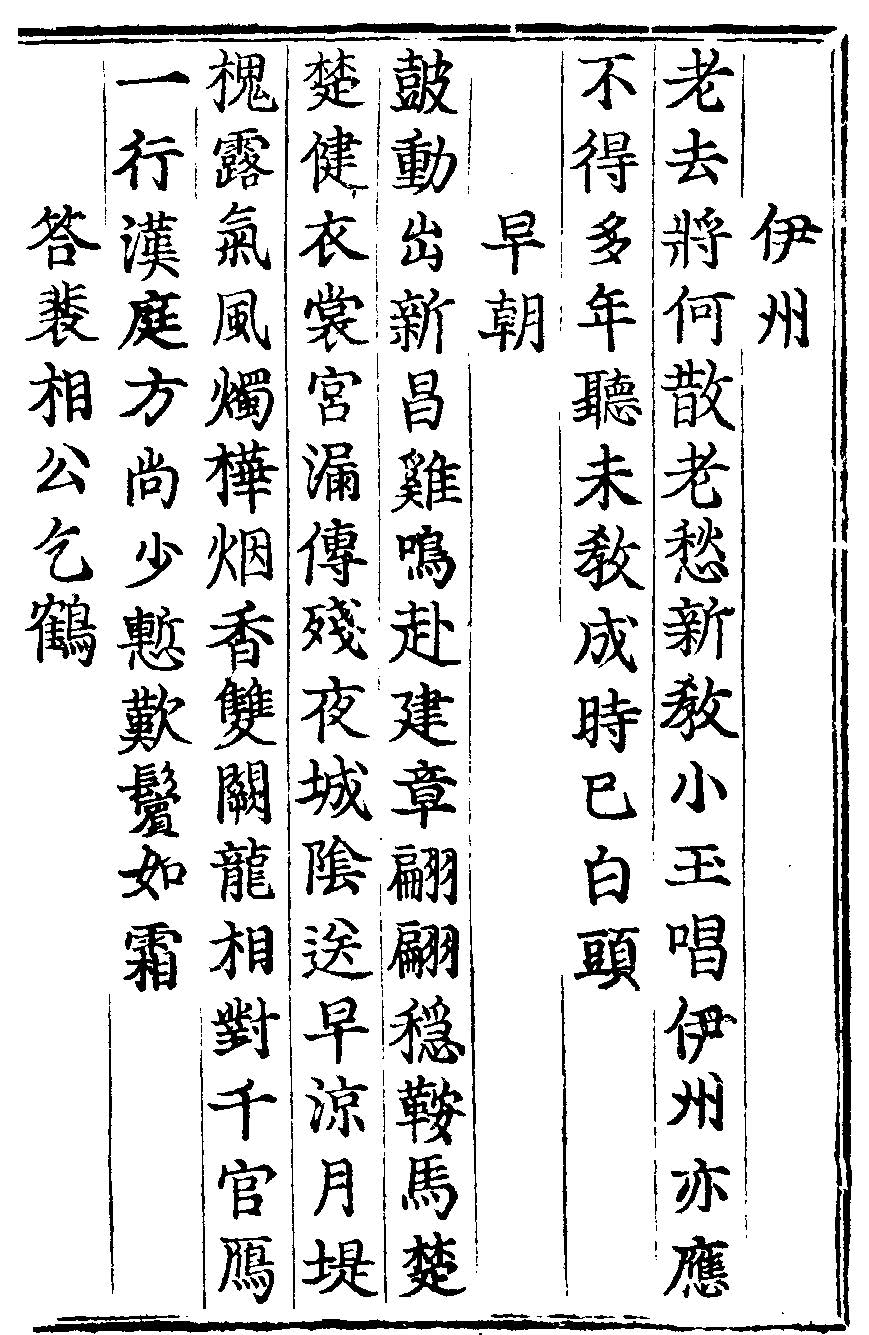 伊州
老去將何散老愁新教小玉唱伊州亦應
不得多年聽未教成時已白頭
早朝
皷動出新昌雞鳴赴建章翩翩穩鞍馬楚
楚健衣裳宮漏傳殘夜城陰送早涼月堤
槐露氣風燭樺烟香雙闕龍相對千官鴈
一行漢庭方尚少慙歎鬢如霜
答裴相公乞鶴